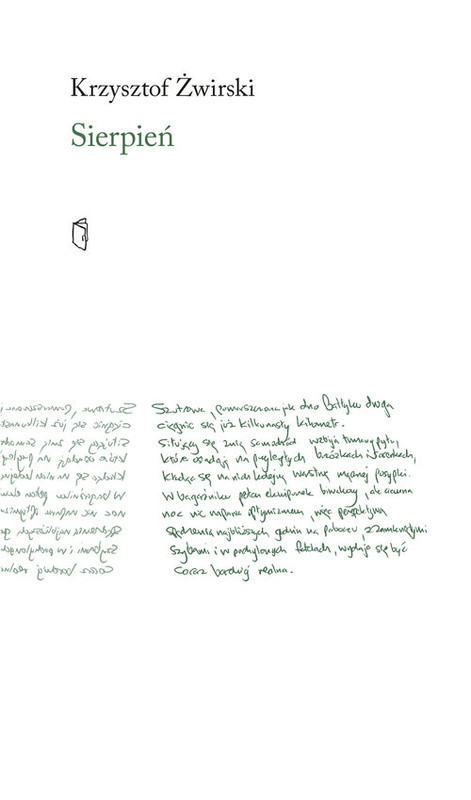 Krzysztof Żwirski
Sierpień
Szutrowa, pomarszczona jak dno Bałtyku droga
ciągnie się już kilkunasty kilometr.
Siłujący się z nią samochód wzbija tumany pyłu,
które osiadają na przyległych brzózkach i sosenkach,
kładąc się na nich kolejną warstwą mącznej posypki.
W bagażniku pełen ekwipunek biwakowy, ale czarna
noc nie napawa optymizmem, więc perspektywa
spędzenia najbliższych godzin na poboczu, z zamkniętymi
szybami i w pochylonych fotelach, wydaje się być
coraz bardziej realna.